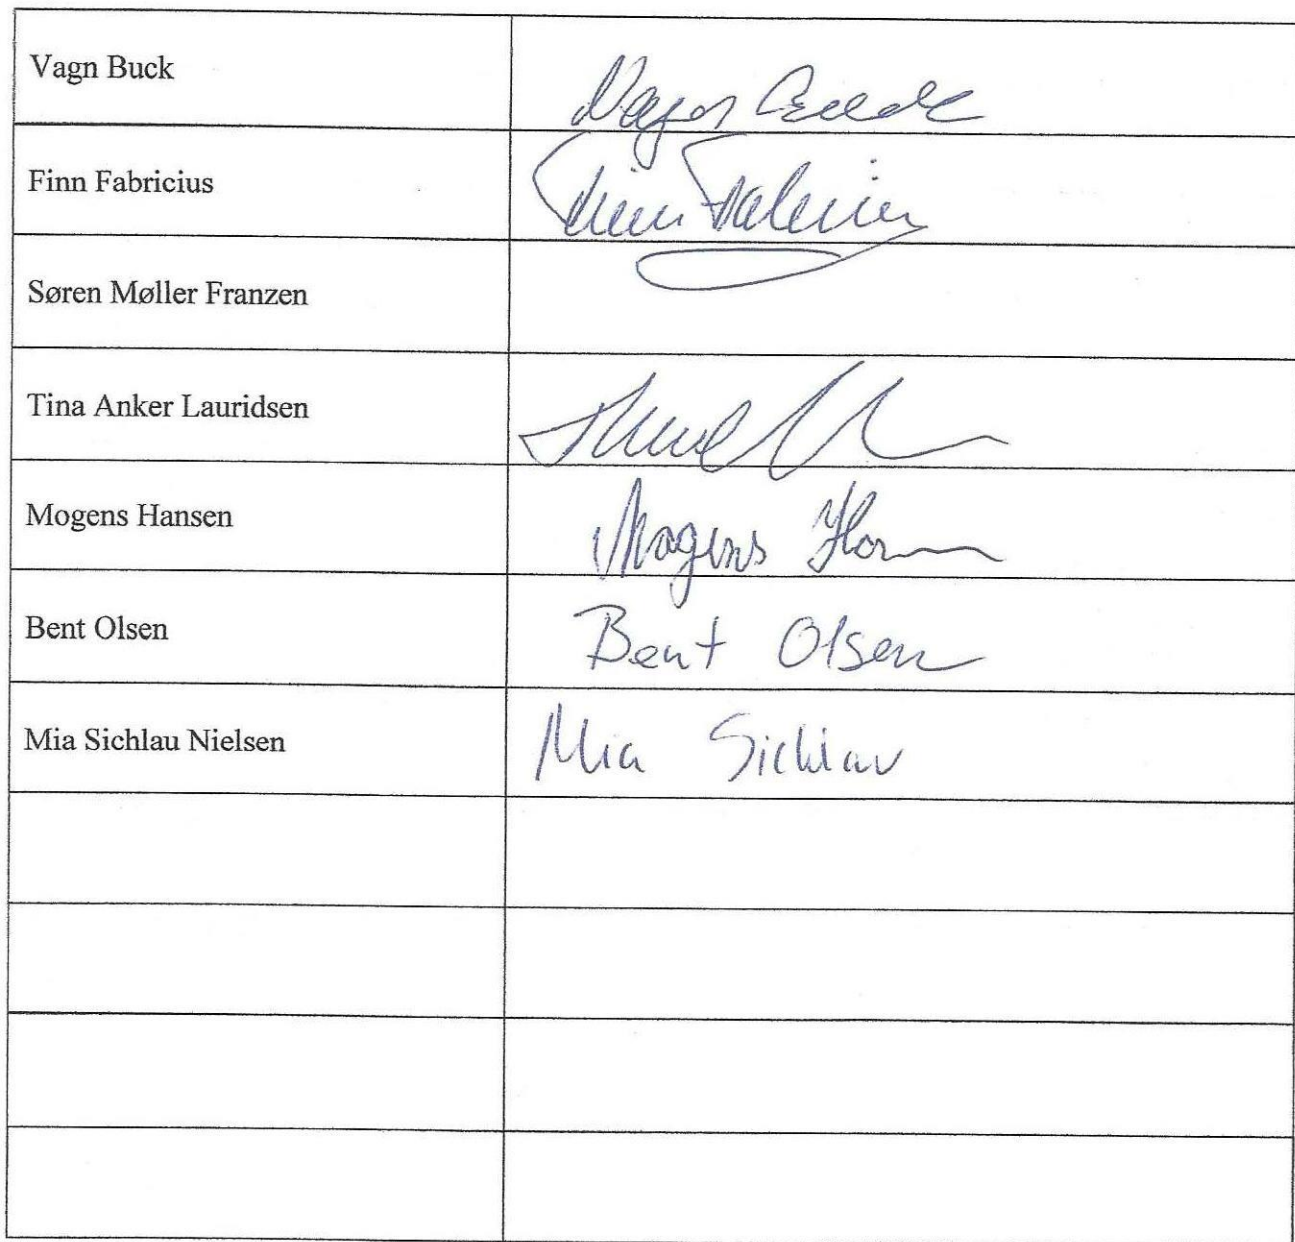 Vagn Buck
Vagn Buck
Finn Fabricius
Finn
Søren Møller Franzen
Tina Anker Lauridsen
Mogens Hansen
Mogens
Bent Olsen
Bent Olsen
Mia Sichlau Nielsen
Mia Sichlau